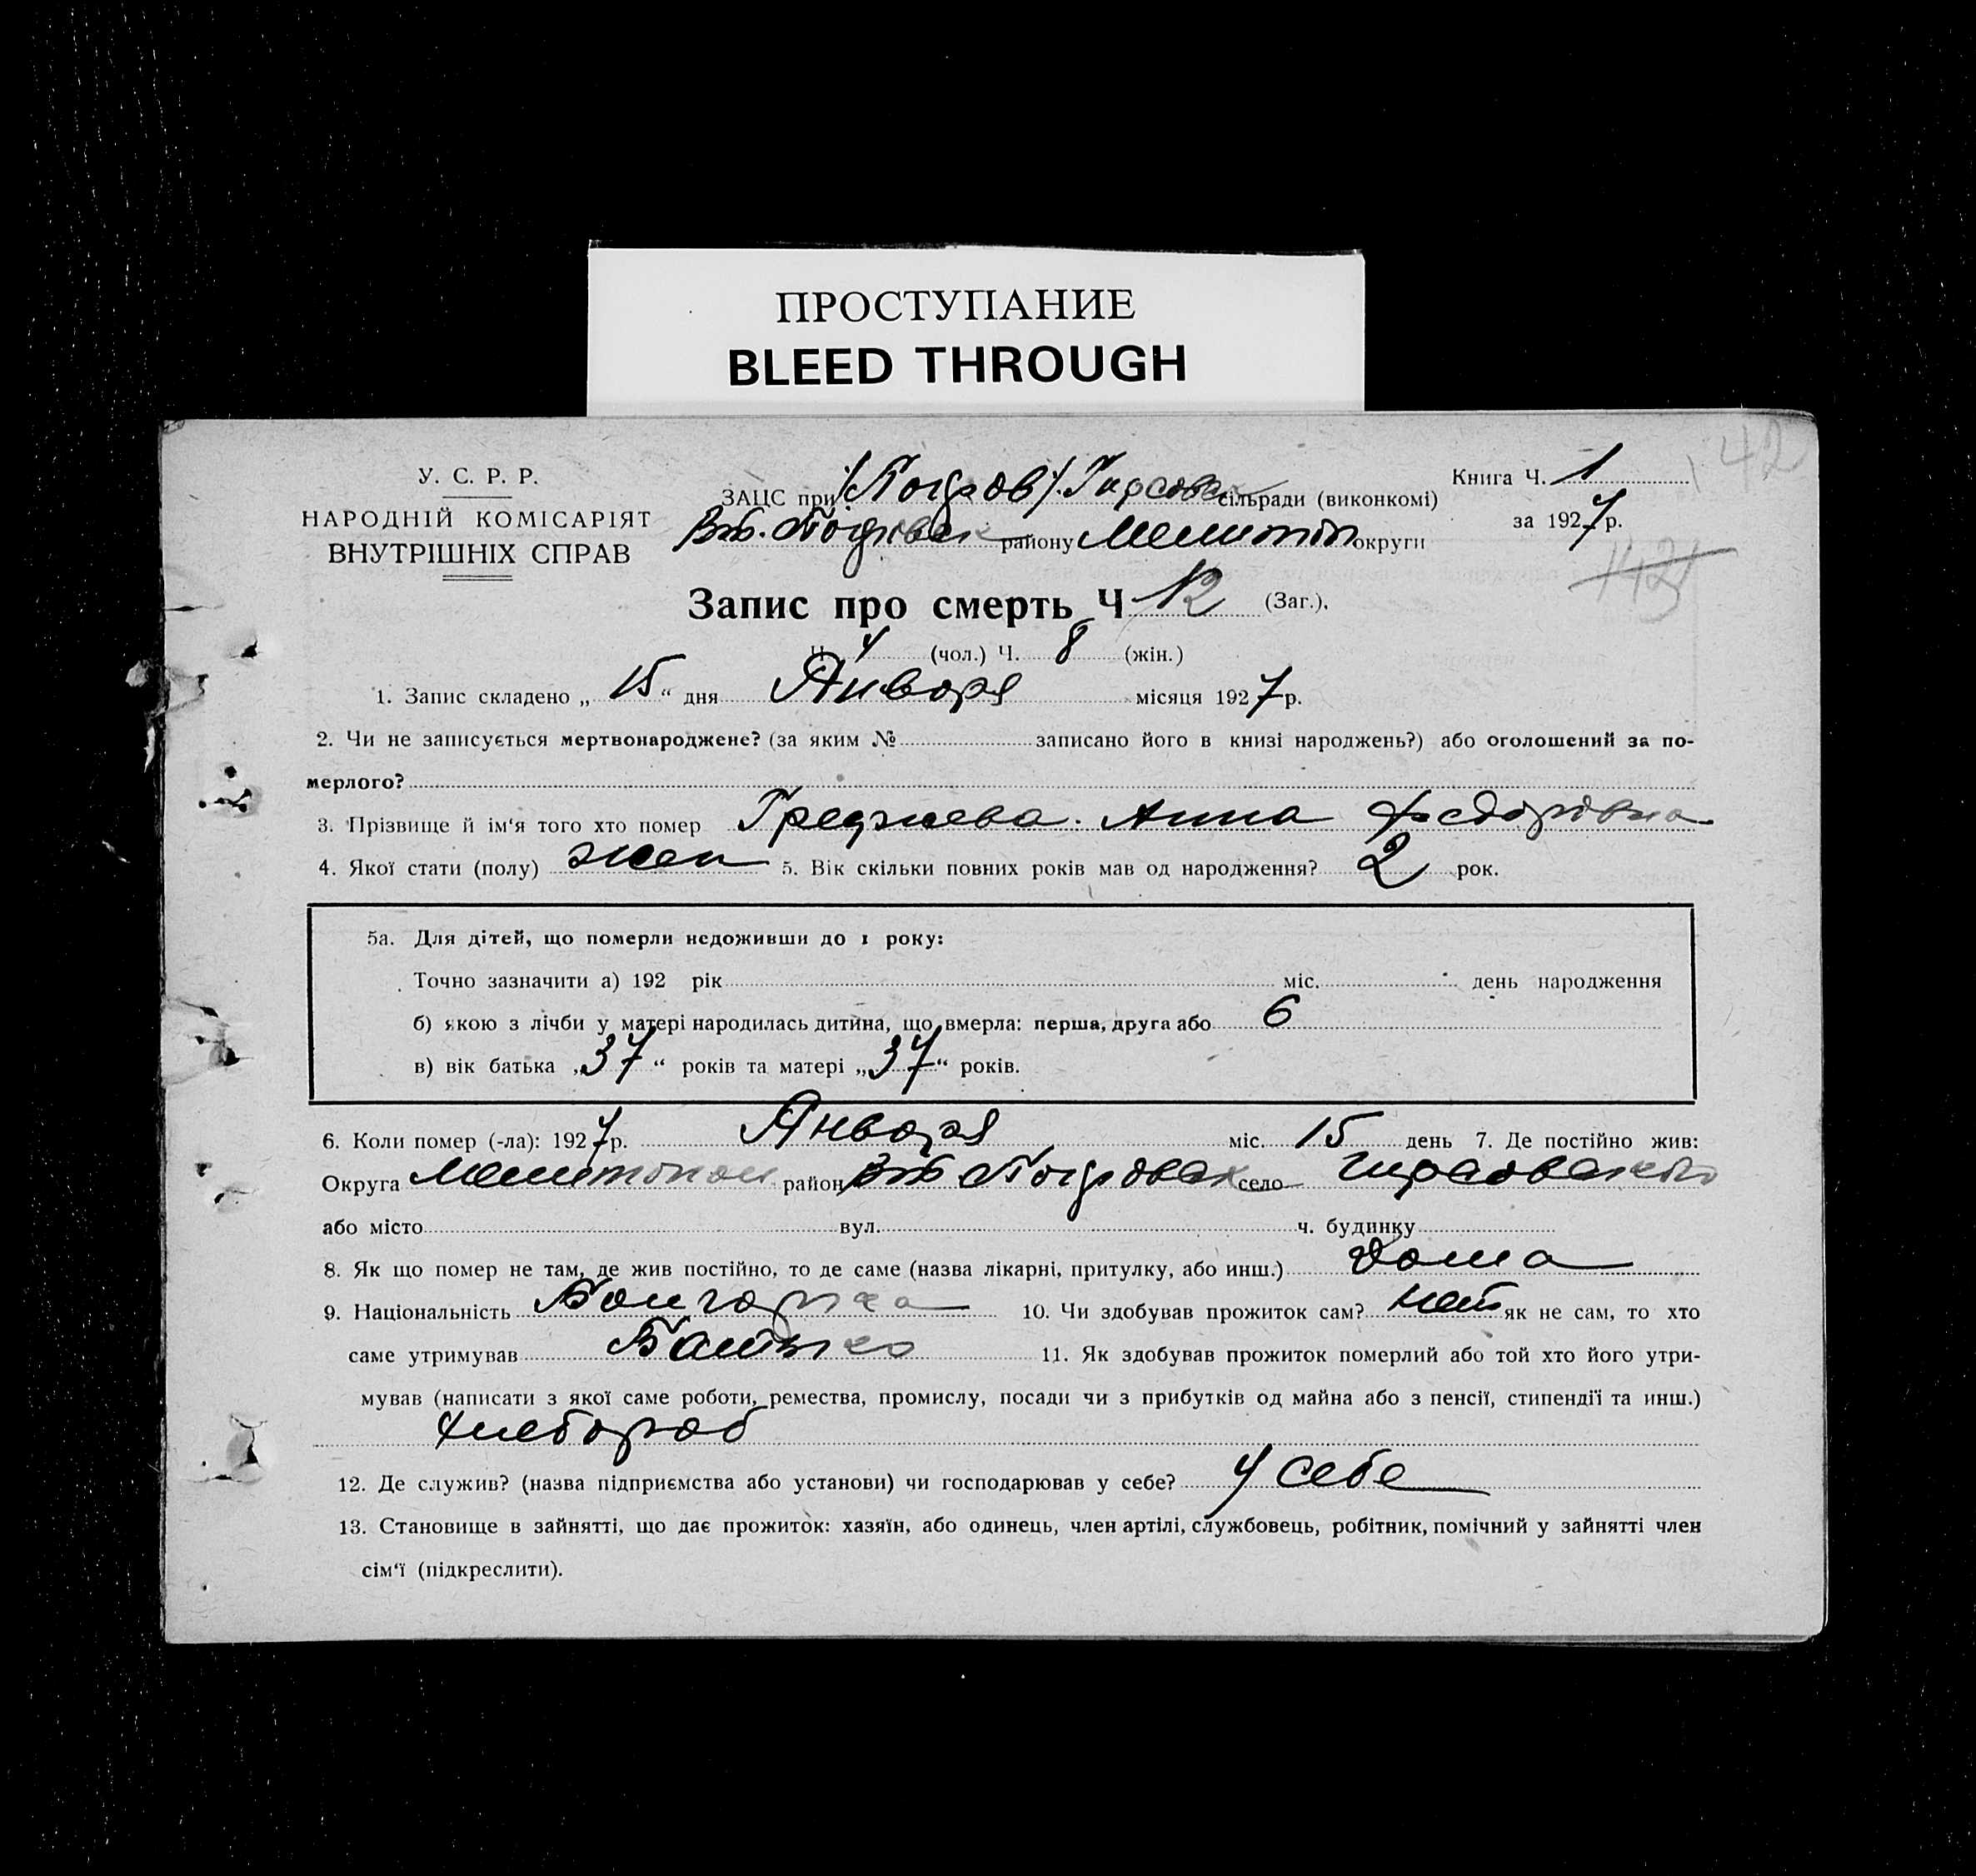 ПРОСТУПАНИЕ
BLEED THROUGH
42
У. С. Р. Р.
НАРОДНІЙ КОМІСАРІЯТ
ВНУТРІШНІХ СПРАВ
ЗАЦС при сільради (виконкомі)
району округи
Книга Ч. 1
за 1927 р.
Запис про смерть Ч 12 (Заг.),
Ч. 4 (чол.) Ч. 8 (жін.)
1. Запис складено „ 15 “ дня Января місяця 1927 р.
2. Чи не записується мертвонароджене? (за яким № записано його в книзі народжень?) або оголошений за по-
мерлого?
3. Прізвище й ім‘я того хто помер Анна Федорівна
4. Якої стати (полу) жен 5. Вік скільки повних років мав од народження? 2 рок.
5а. Для дітей, що померли недоживши до 1 року:
Точно зазначити а) 192 рік міс. день народження
б) якою з лічби у матері народилась дитина, що вмерла: перша, друга або 6
в) вік батька „37“ років та матері „37“ років.
6. Коли помер (-ла): 1927 р. Января міс. 15 день 7. Де постійно жив:
Округа район село
або місто вул. ч. будинку
8. Як що помер не там, де жив постійно, то де саме (назва лікарні, притулку, або инш.) дома
9. Національність Болгарка 10. Чи здобував прожиток сам? нет як не сам, то хто
саме утримував Батько 11. Як здобував прожиток померлий або той хто його утри-
мував (написати з якої саме роботи, ремества, промислу, посади чи з прибутків од майна або з пенсії, стипендії та инш.)
хлебороб
12. Де служив? (назва підприємства або установи) чи господарював у себе? у себе
13. Становище в зайнятті, що дає прожиток: хазяїн, або одинець, член артілі, службовець, робітник, помічний у зайнятті член
сім‘ї (підкреслити).